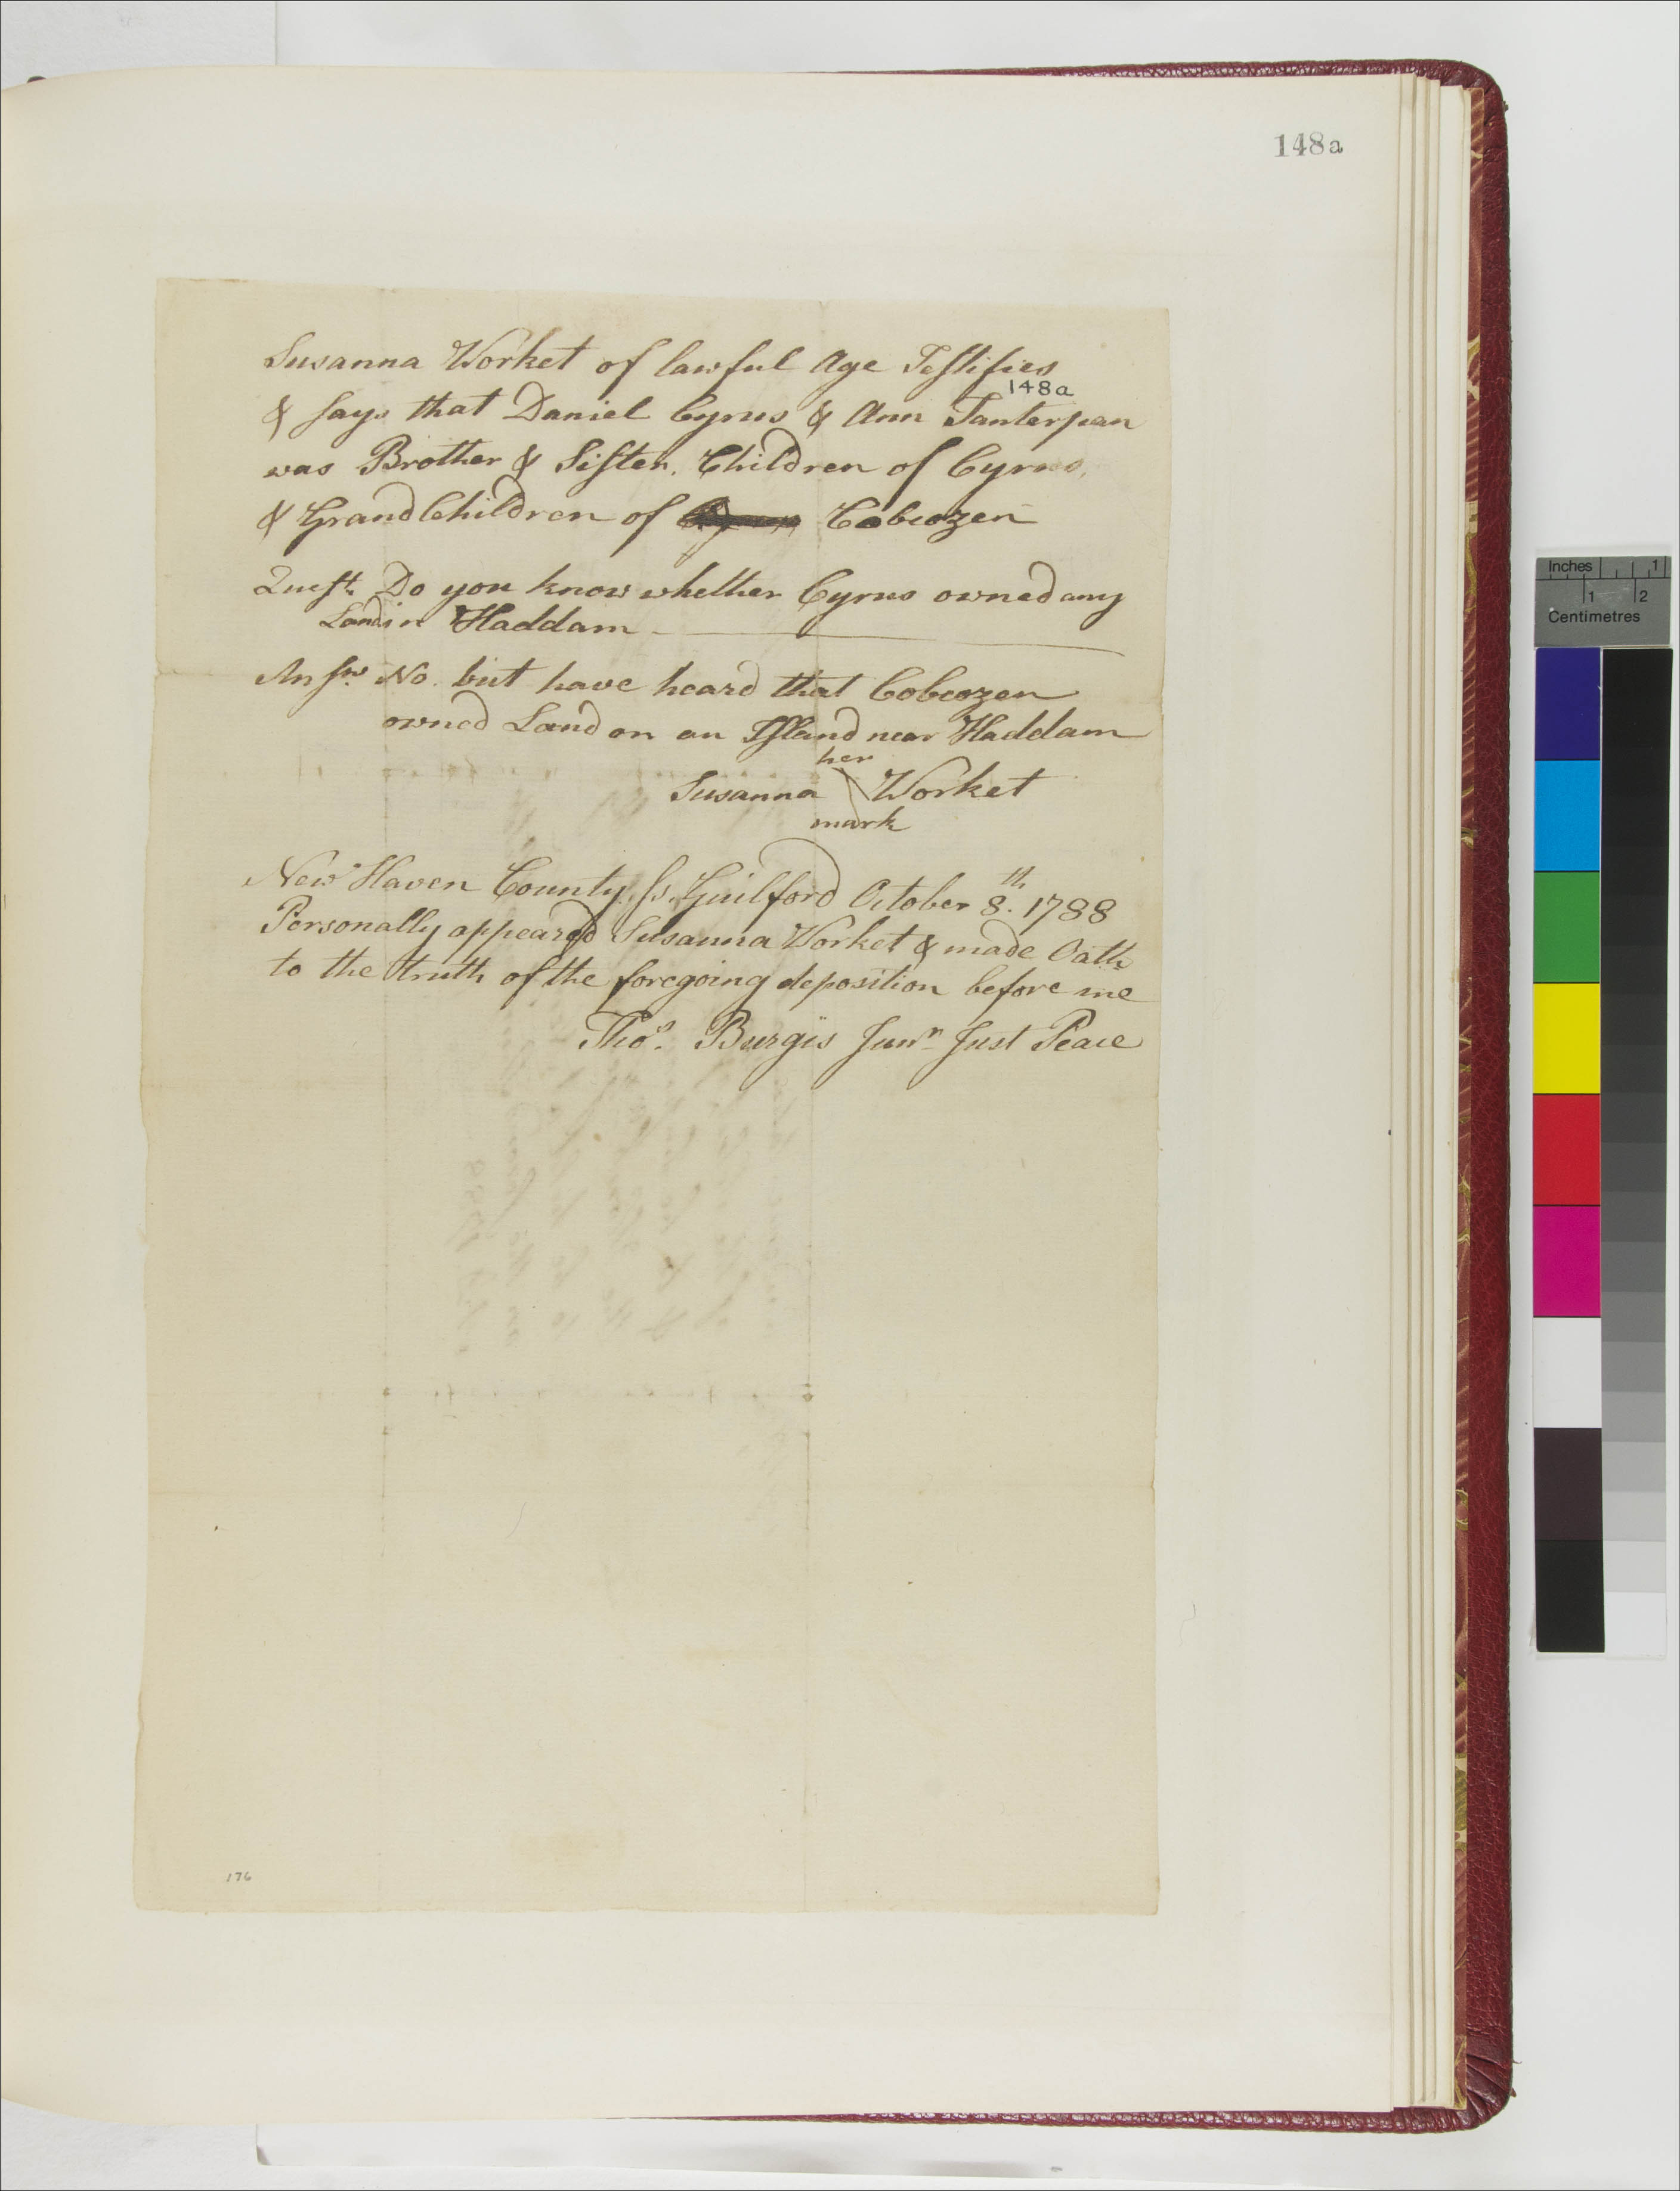 148a
Susanna Worket of lawful Age Testifies
148a
& says that Daniel Cyrus & Ann Tanterpan
was Brother & Sister, Children of Cyrus,
& GrandChildren of Cobcozen
Quest. Do you know whether Cyrus owned any
Land in Haddam
Answ. No. but have heard that Cobcozen
owned Land on an Island near Haddam
her
Susanna Worket
mark
New Haven County, ss. Guilford October 8th. 1788
Personally appeared Susanna Worket & made Oath
to the truth of the foregoing deposition before me
Thos. Burgis Junr. Just Peace
176
Inches 1
1 2
Centimetres